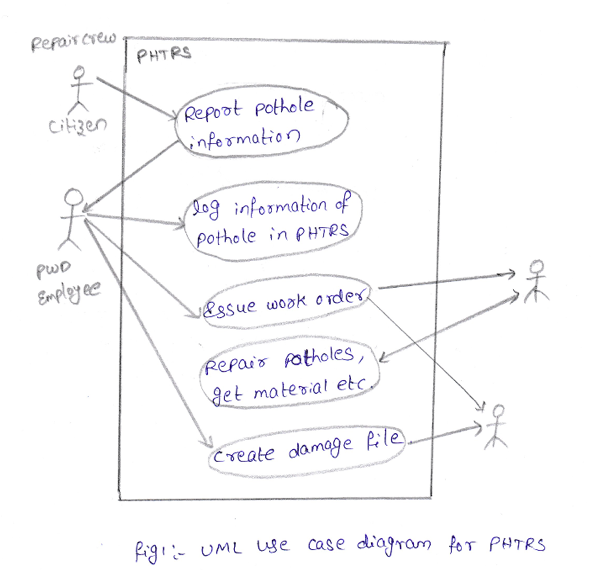 Repair crew
PHTRS
Citizen
Report pothole
information
log information of
pothole in PHTRS
PWD
Employee
Issue work order
Repair potholes,
get material etc.
Create damage file
fig1:- UML use case diagram for PHTRS